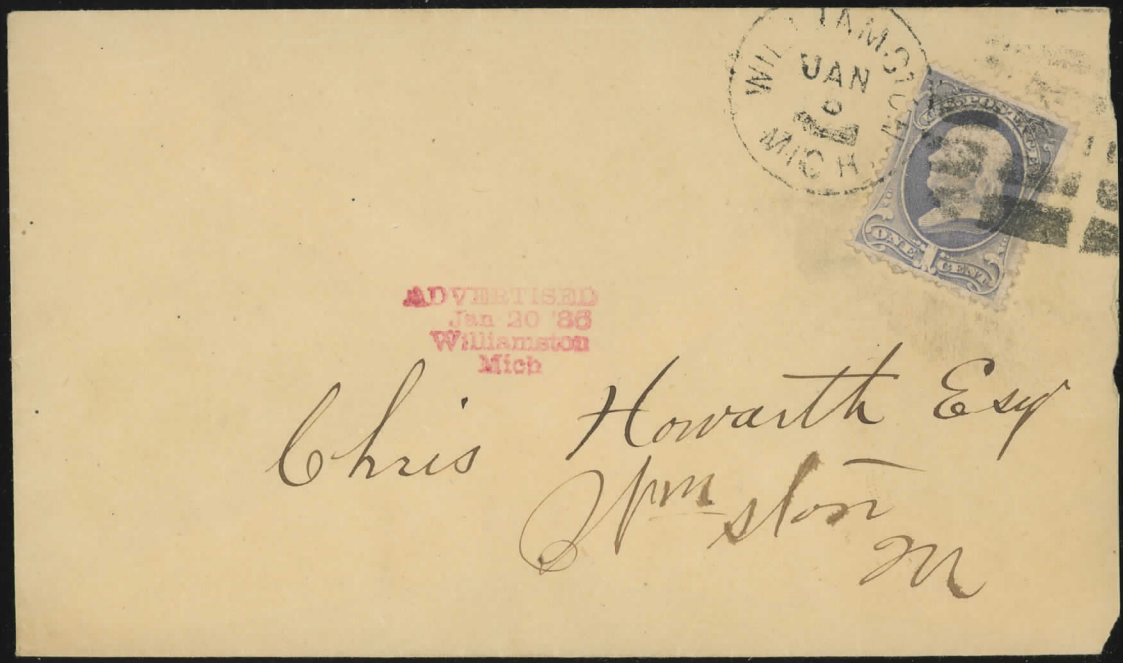 WILLIAMSTON
JAN
6
MICH
U.S. POSTAGE
ONE 1 CENT
ADVERTISED
Jan 20 '86
Williamston
Mich
Chris Howarth Esqr
Wmston
M